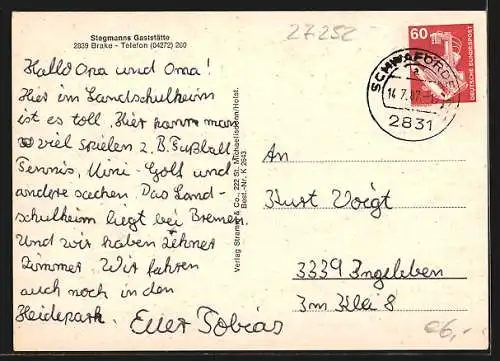 Stegmanns Gaststätte
2839 Brake - Telefon (04272) 260
27252
60
DEUTSCHE BUNDESPOST
SCHWAFÖRDEN
a
14.7.87.-1
2831
Hallo Opa und Oma!
Hier im Landschulheim
ist es toll. Hier kann man
viel spielen z.B. Fußball
Tennis, Mini-Golf und
andere sachen. Das Land-
schulheim liegt bei Bremen.
Und wir haben 2èhner
Zimmer. Wir fahren
auch noch in den
Heidepark. Euer Tobias
Verlag Stramm & Co., 222 St. Michaelisdonn/Holst.
Best.-Nr. K 2643
An
Kurt Voigt
3339 Ingeleben
Im Klei 8
€6,-